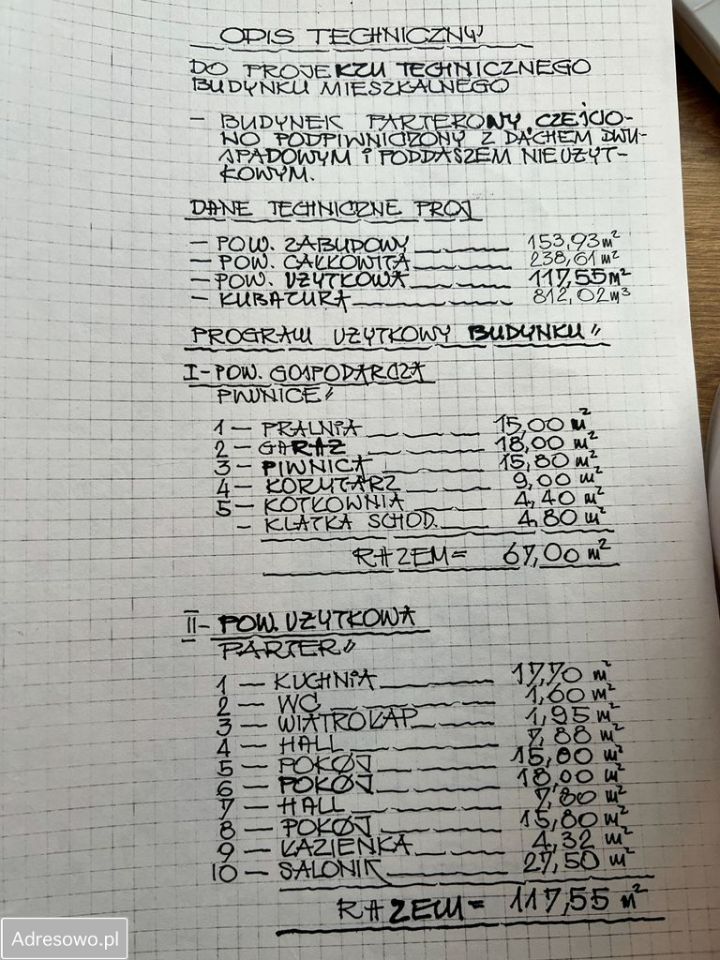 OPIS TECHNICZNY
DO PROJEKTU TECHNICZNEGO
BUDYNKU MIESZKALNEGO
- BUDYNEK PARTEROWY CZĘŚCIO-
NO PODPIWNICZONY Z DACHEM DWU-
SPADOWYM I PODDASZEM NIEUŻYT-
KOWYM.
DANE TECHNICZNE PROJ
- POW. ZABUDOWY 153,93 m²
- POW. CAŁKOWITA 238,61 m²
- POW. UŻYTKOWA 117,55 m²
- KUBATURA 812,02 m³
PROGRAM UŻYTKOWY BUDYNKU"
I - POW. GOSPODARCZA
PIWNICE"
1 - PRALNIA 15,00 m²
2 - GARAŻ 18,00 m²
3 - PIWNICA 15,80 m²
4 - KORYTARZ 9,00 m²
5 - KOTŁOWNIA 4,40 m²
- KLATKA SCHOD. 4,80 m²
RAZEM = 67,00 m²
II - POW. UŻYTKOWA
PARTER"
1 - KUCHNIA 17,70 m²
2 - WC 1,60 m²
3 - WIATROŁAP 1,95 m²
4 - HALL 7,88 m²
5 - POKÓJ 15,00 m²
6 - POKÓJ 18,00 m²
7 - HALL 7,80 m²
8 - POKÓJ 15,80 m²
9 - ŁAZIENKA 4,32 m²
10 - SALONIK 27,50 m²
RAZEM = 117,55 m²
Adresowo.pl